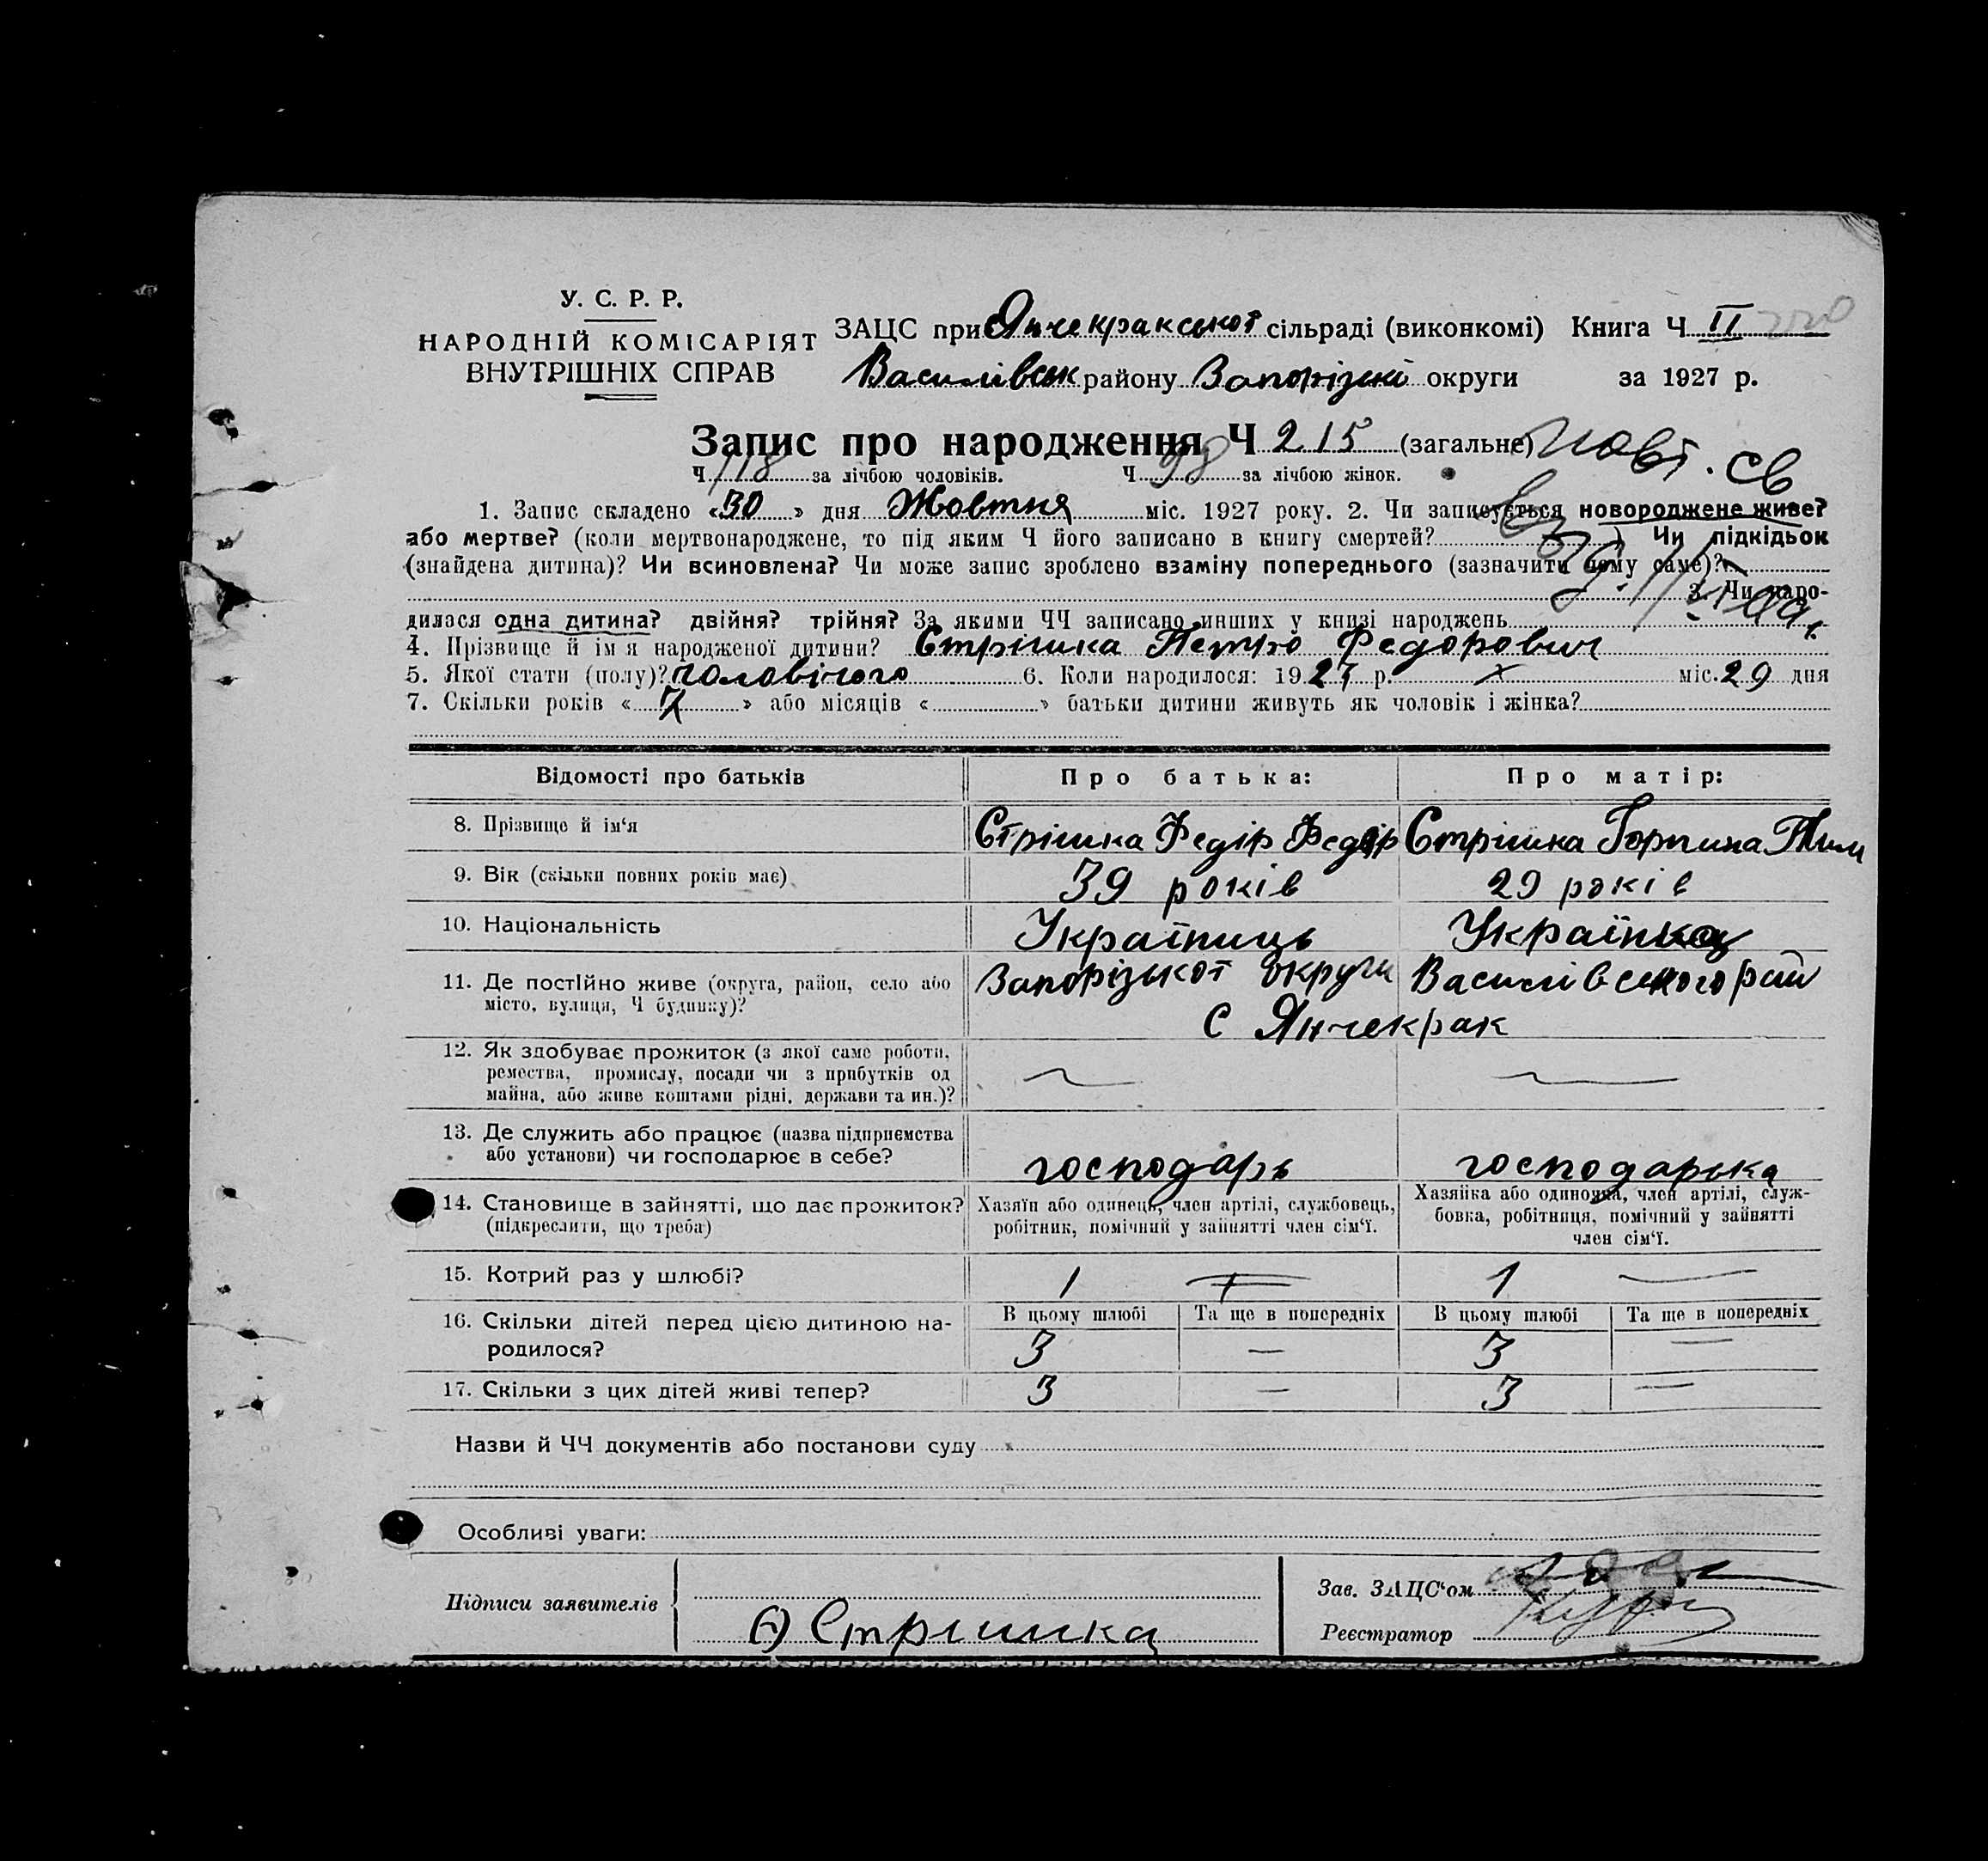 У. С. Р. Р.
НАРОДНІЙ КОМІСАРІЯТ
ВНУТРІШНІХ СПРАВ
ЗАЦС при Янчекракської сільраді (виконкомі) Книга Ч II
Василівськ району Запорізької округи за 1927 р.
Запис про народження Ч 215 (загальне) повт. св
Ч 118 за лічбою чоловіків. Ч 98 за лічбою жінок.
1. Запис складено «30» дня Жовтня міс. 1927 року. 2. Чи записується новороджене живе?
або мертве? (коли мертвонароджене, то під яким Ч його записано в книгу смертей? ) Чи підкідьок
(знайдена дитина)? Чи всиновлена? Чи може запис зроблено взаміну попереднього (зазначити чому саме)?
3. Чи наро-
дилася одна дитина? двійня? трійня? За якими ЧЧ записано инших у книзі народжень
4. Прізвище й ім я народженої дитини? Стрішка Петро Федорович
5. Якої стати (полу)? чоловічого 6. Коли народилося: 1927 р. х міс. 29 дня
7. Скільки років «7» або місяців « » батьки дитини живуть як чоловік і жінка?
Відомості про батьків Про батька: Про матір:
8. Прізвище й ім'я Стрішка Федір Федор Стрішка Горпина Тим
9. Вік (скільки повних років має) 39 років 29 років
10. Національність Українць Українка
11. Де постійно живе (округа, район, село або Запорізької округи Василівського рай
місто, вулиця, Ч будинку)? С Янчекрак
12. Як здобуває прожиток (з якої саме роботи,
ремества, промислу, посади чи з прибутків од
майна, або живе коштами рідні, держави та ин.)?
13. Де служить або працює (назва підприємства
або установи) чи господарює в себе? господарь господарька
14. Становище в зайнятті, що дає прожиток? Хазяїн або одинець, член артілі, службовець, Хазяйка або одиночка, член артілі, служ-
(підкреслити, що треба) робітник, помічний у зайнятті член сім'ї. бовка, робітниця, помічний у зайнятті
член сім'ї.
15. Котрий раз у шлюбі? 1 — 1 —
16. Скільки дітей перед цією дитиною на- В цьому шлюбі Та ще в попередніх В цьому шлюбі Та ще в попередніх
родилося? 3 — 3 —
17. Скільки з цих дітей живі тепер? 3 — 3 —
Назви й ЧЧ документів або постанови суду
Особливі уваги:
Підписи заявителів Зав. ЗАЦС'ом
Стрішка Реєстратор